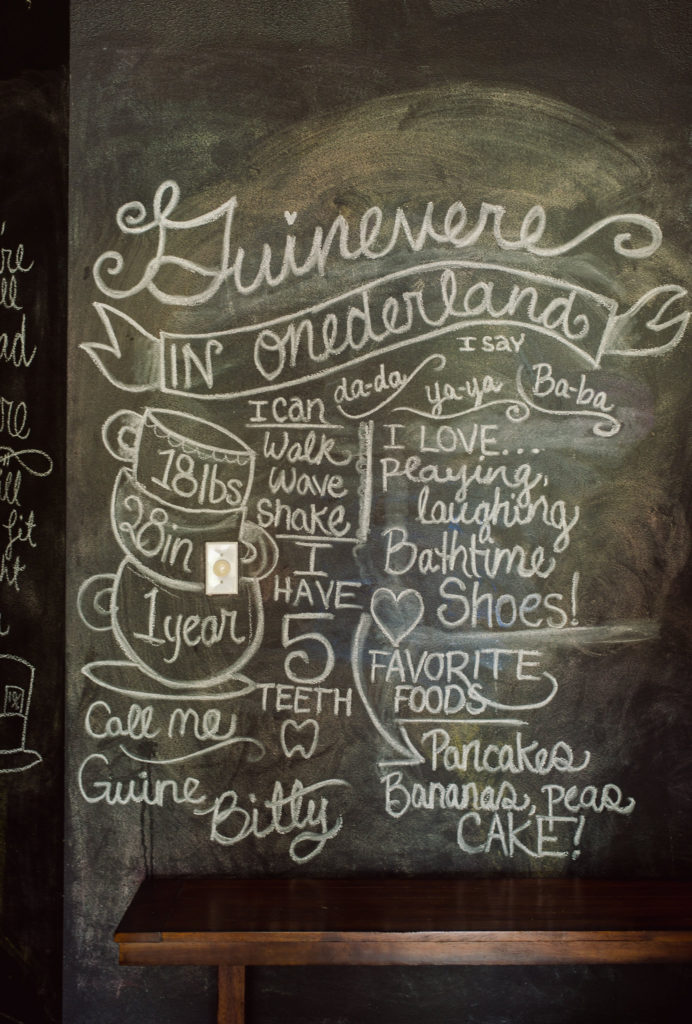 Guinevere
IN Onederland
I SAY
da-da
ya-ya
Ba-ba
18lbs
28in
1year
Call me
Gwine
Bitty
I can
Walk
Wave
Shake
I
HAVE
5
TEETH
I LOVE...
Playing,
laughing
Bathtime
Shoes!
FAVORITE
FOODS
Pancakes
Bananas, peas
CAKE!